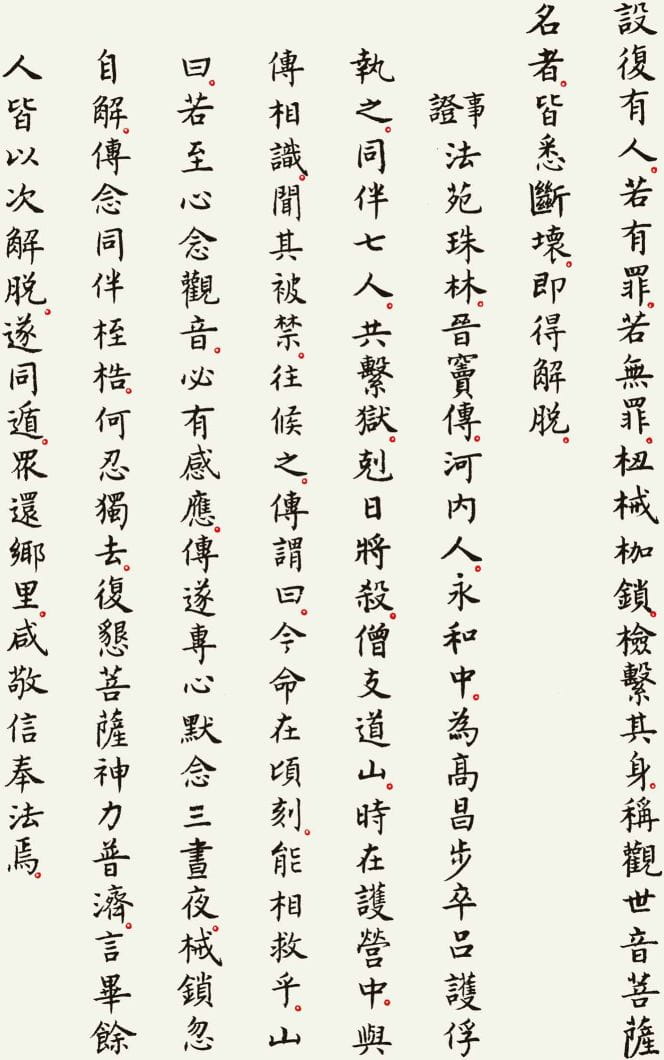 設復有人。若有罪。若無罪。杻械枷鎖。檢繫其身。稱觀世音菩薩
名者。皆悉斷壞。即得解脫。
事證 法苑珠林。晉竇傳。河內人。永和中。為高昌步卒呂護俘
執之。同伴七人。共繫獄。剋日將殺。僧支道山。時在護營中。與
傳相識。聞其被禁。往候之。傳謂曰。今命在頃刻。能相救乎。山
曰。若至心念觀音。必有感應。傳遂專心默念三晝夜。械鎖忽
自解。傳念同伴桎梏。何忍獨去。復懇菩薩神力普濟。言畢餘
人皆以次解脫。遂同遁。眾還鄉里。咸敬信奉法焉。